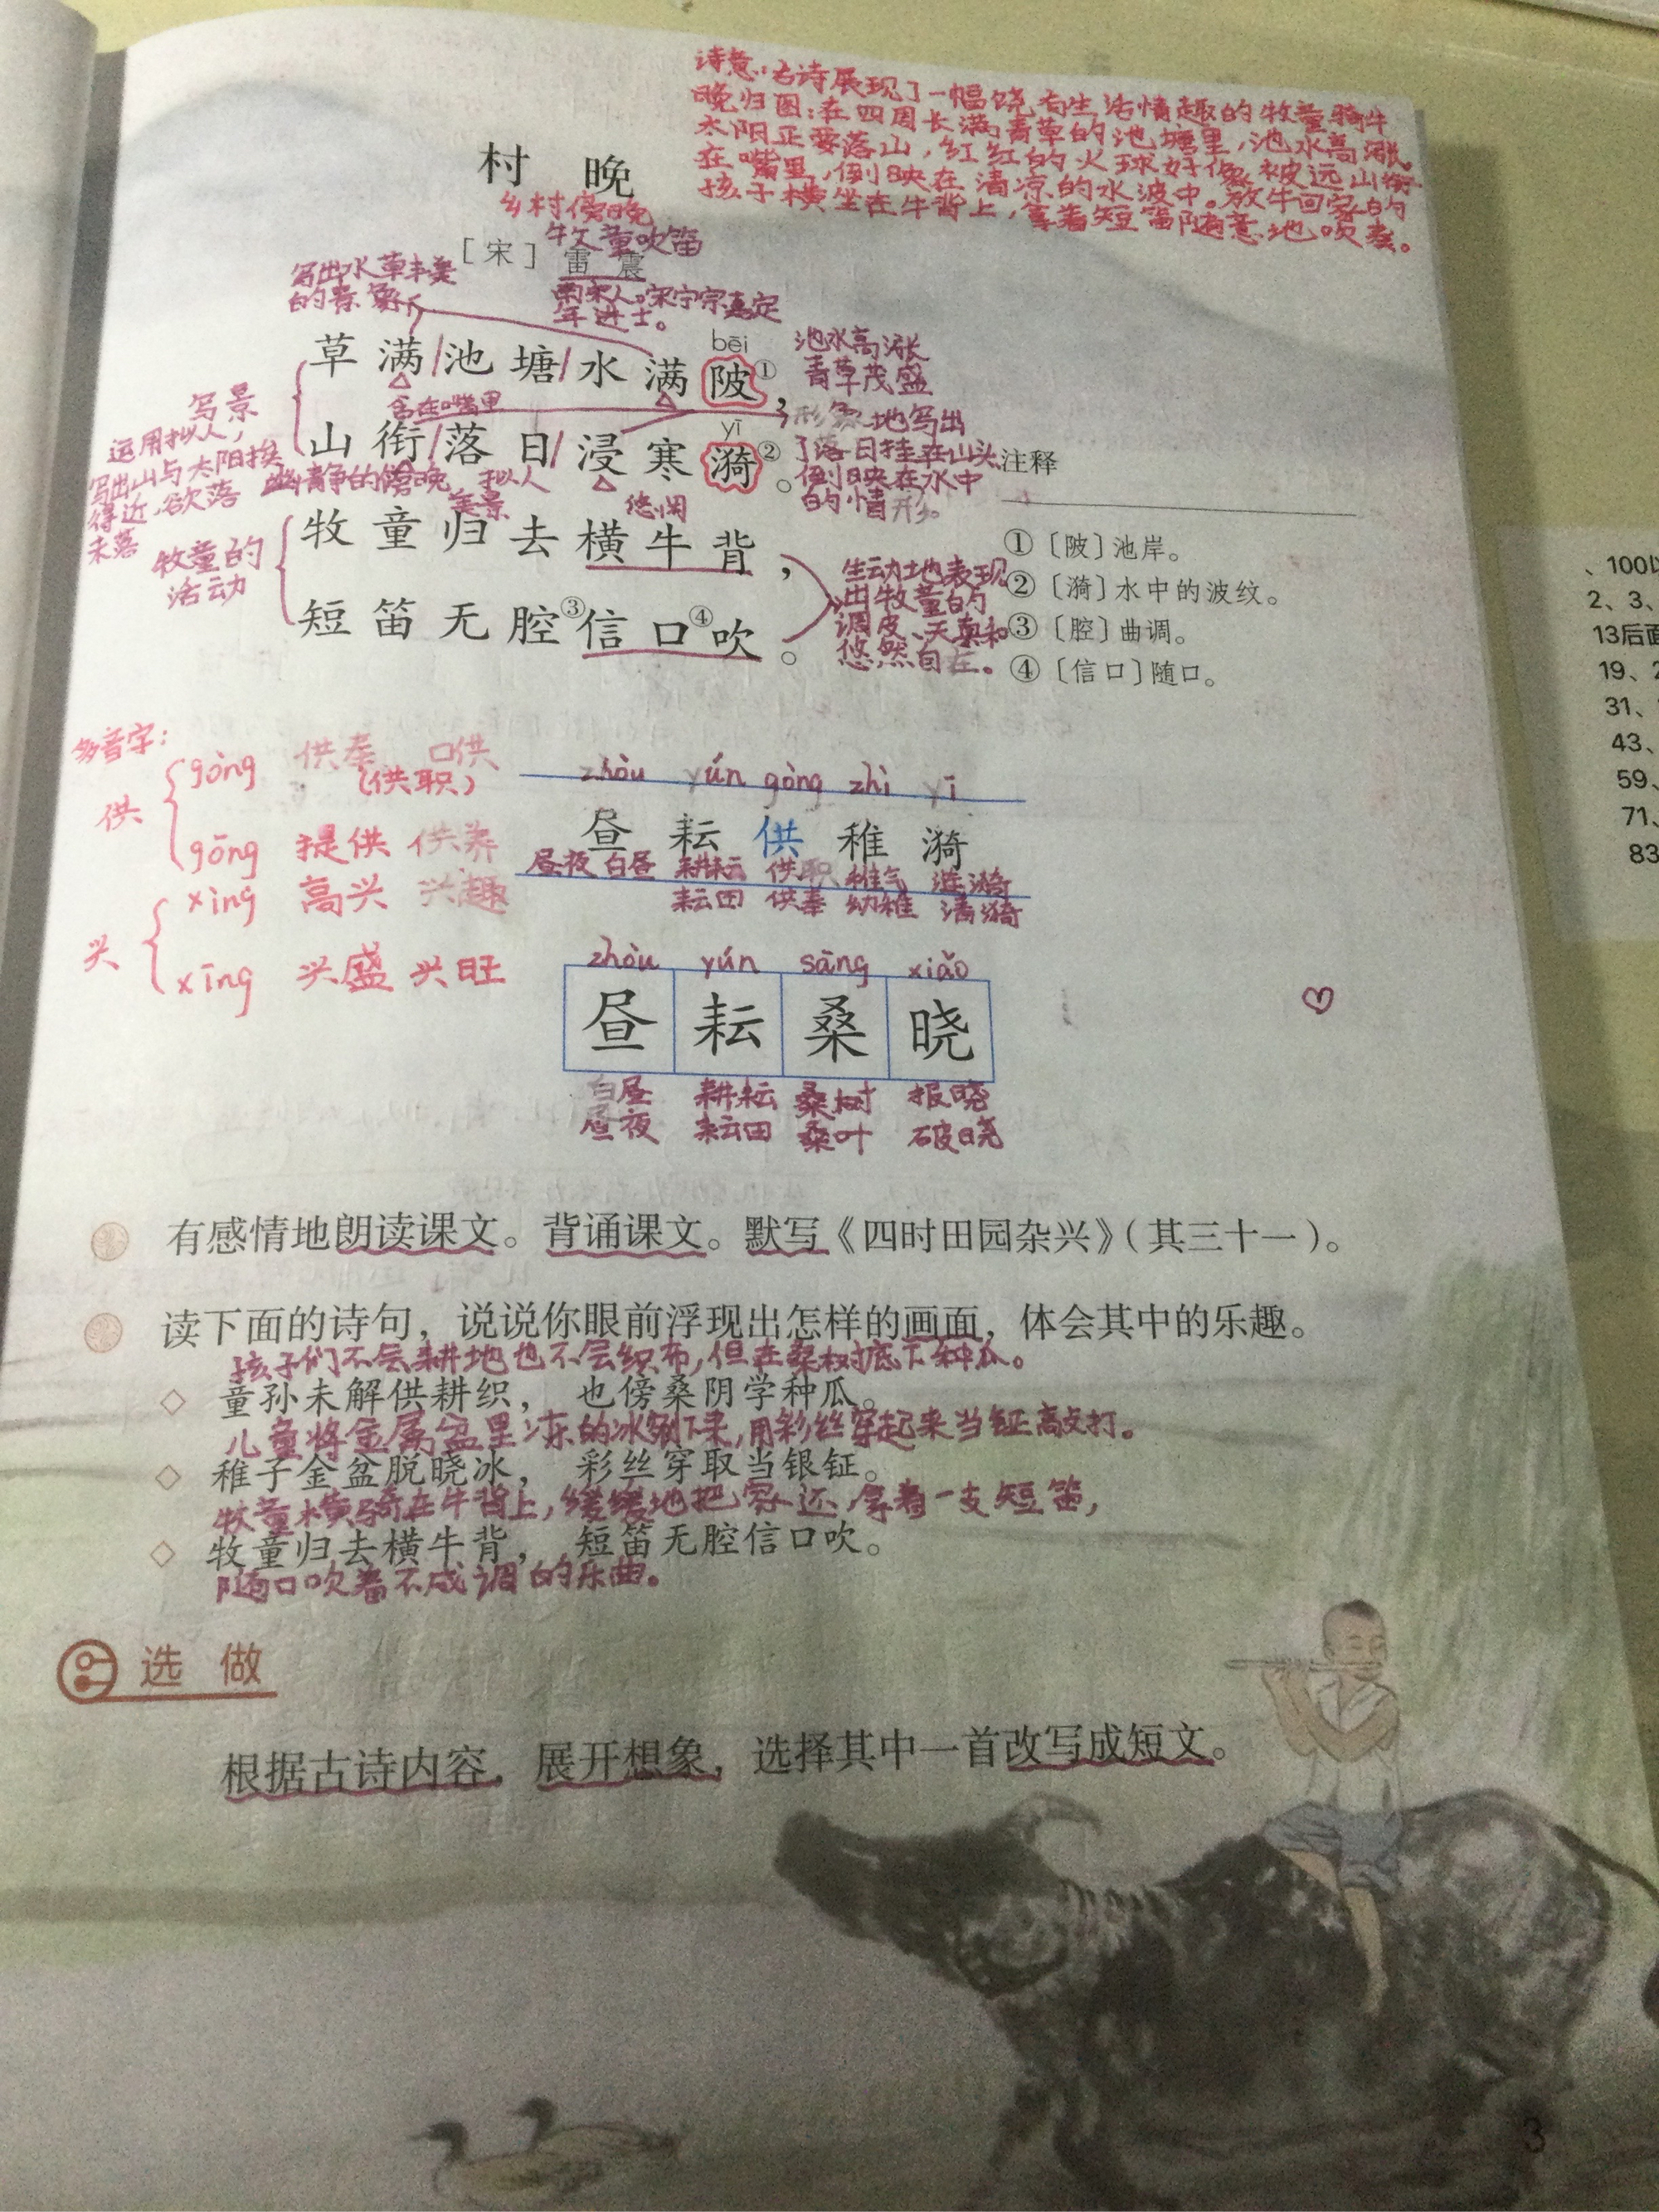 诗意:古诗展现了一幅饶有生活情趣的牧童骑牛
晚归图:在四周长满青草的池塘里,池水高涨。
太阳正要落山,红红的火球好像被远山衔
在嘴里,倒映在清凉的水波中。放牛回家的
孩子横坐在牛背上,拿着短笛随意地吹奏。
村 晚
乡村傍晚
牧童吹笛
[宋] 雷 震
南宋人。宋宁宗嘉定
年进士。
写出水草丰美
的景象
bēi
草满/池塘/水满陂①,
池水高涨
青草茂盛
含在嘴里
yī
山衔/落日/浸寒漪②。
形象地写出
了落日挂在山头
倒映在水中
的情形。
写景
运用拟人,
写出山与太阳挨
得近,欲落
未落
幽静的傍晚
美景
拟人
悠闲
牧童归去横牛背,
短笛无腔③信口④吹。
牧童的
活动
生动地表现
出牧童的
调皮、天真和
悠然自在。
注释
①〔陂〕池岸。
②〔漪〕水中的波纹。
③〔腔〕曲调。
④〔信口〕随口。
多音字:
供
gòng 供奉 口供
(供职)
gōng 提供 供养
兴
xìng 高兴 兴趣
xīng 兴盛 兴旺
zhòu yún gòng zhì yī
昼 耘 供 稚 漪
昼夜 白昼 耕耘 供职 稚气 涟漪
耘田 供奉 幼稚 清漪
zhòu yún sāng xiǎo
昼 耘 桑 晓
白昼 耕耘 桑树 报晓
昼夜 耘田 桑叶 破晓
有感情地朗读课文。背诵课文。默写《四时田园杂兴》(其三十一)。
读下面的诗句,说说你眼前浮现出怎样的画面,体会其中的乐趣。
孩子们不会耕地也不会织布,但在桑树底下种瓜。
◇ 童孙未解供耕织, 也傍桑阴学种瓜。
儿童将金属盆里冻的冰剜下来,用彩丝穿起来当钲敲打。
◇ 稚子金盆脱晓冰, 彩丝穿取当银钲。
牧童横骑在牛背上,缓缓地把家还,拿着一支短笛,
◇ 牧童归去横牛背, 短笛无腔信口吹。
随口吹着不成调的乐曲。
选 做
根据古诗内容,展开想象,选择其中一首改写成短文。
3
、100以
2、3、
13后面
19、2
31、
43、
59、
71、
83